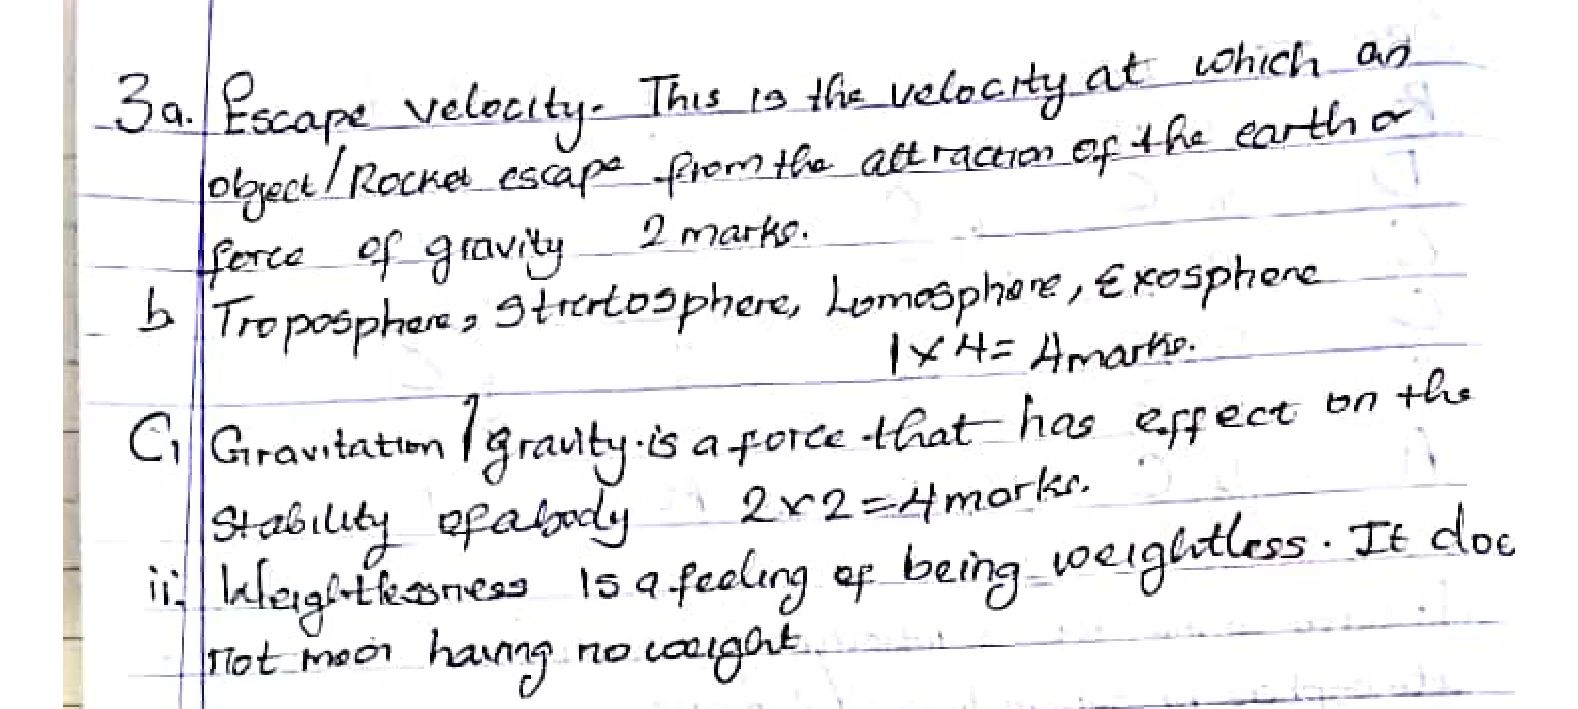 3a. Escape velocity. This is the velocity at which an
object/Rocket escape from the attraction of the earth or
force of gravity 2 marks.
b Troposphere, Stratosphere, Lomosphere, Exosphere
1x4= 4marks.
Ci Gravitation/gravity is a force that has effect on the
Stability of a body 2x2=4marks.
ii. Weightlessness is a feeling of being weightless. It doe
not mean having no weight